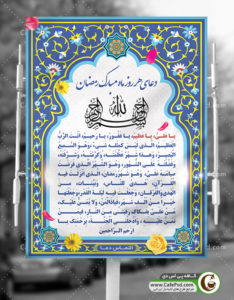 دعای هر روز ماه مبارک رمضان
یا علی، یا عظیم، یا غفور، یا رحیم، انت الرب
العظیم، الذی لیس کمثله شیء، وهو السمیع
البصیر، وهذا شهر عظمته، وکرمته، وشرفته،
وفضلته علی الشهور، وهو الشهر الذی فرضت
صیامه علی، وهو شهر رمضان، الذی انزلت فیه
القرآن، هدی للناس، وبینات من
الهدی والفرقان، وجعلت فیه لیلة القدر، وجعلتها
خیرا من الف شهر، فیاذا المن، ولا یمن علیک،
من علی بفکاک رقبتی من النار، فیمن
تمن علیه، وادخلنی الجنة، برحمتک یا
ارحم الراحمین
التماس دعا
www.CafePsd.com